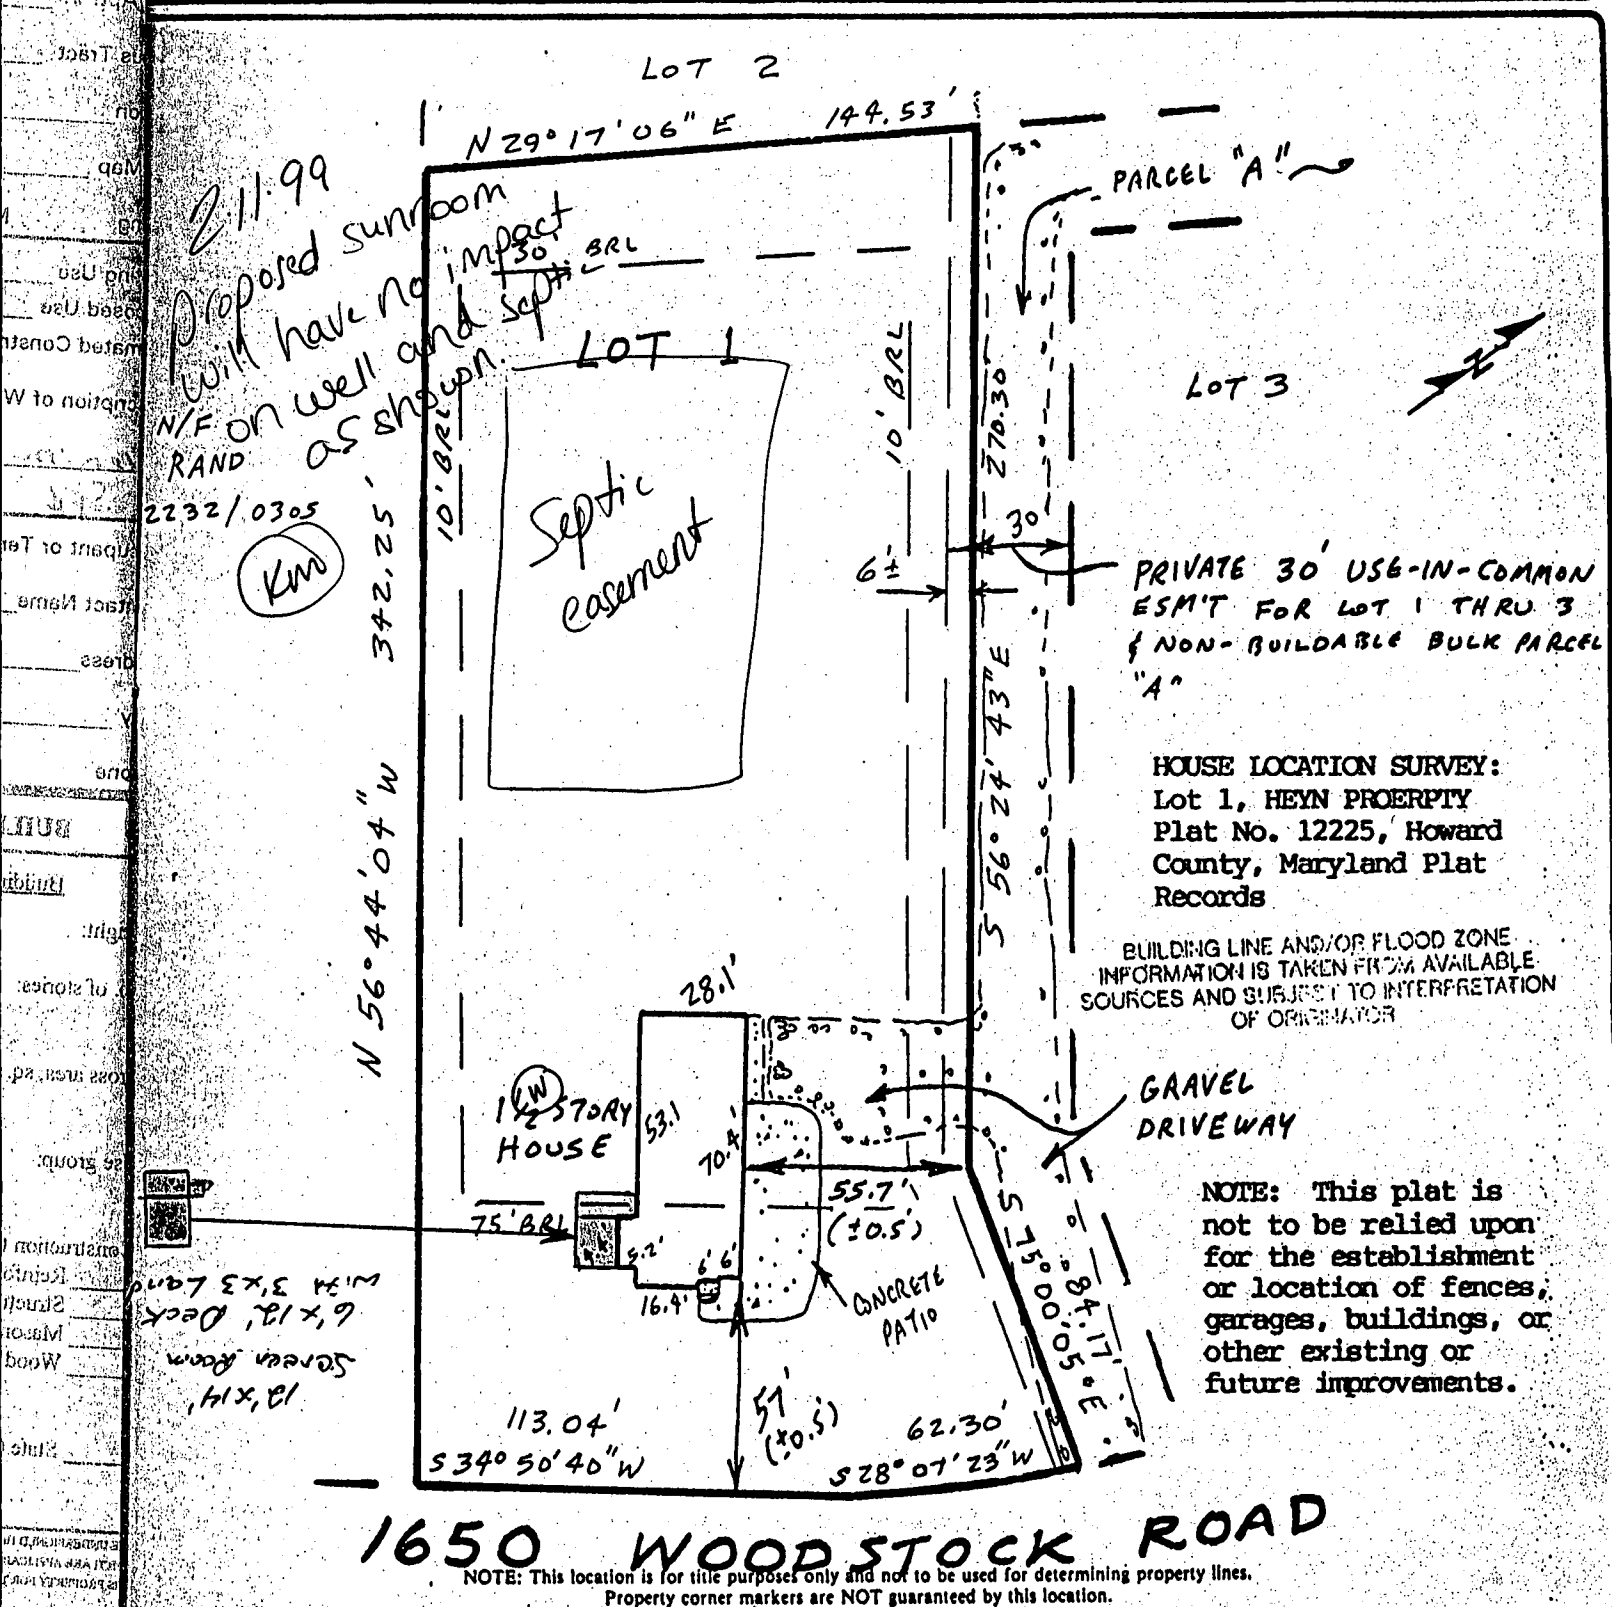 LOT 2
N 29° 17' 06" E 144.53'
2.11.99
Proposed sunroom
will have no impact
on well and septic
as shown.
30' BRL
PARCEL "A"
LOT 1
10' BRL
10' BRL
270.30
LOT 3
N
N/F
RAND
2232/0305
KW
342.25'
N 56° 44' 04" W
Septic
easement
6±
30
S 56° 24' 43" E
PRIVATE 30' USE-IN-COMMON
ESM'T FOR LOT 1 THRU 3
& NON-BUILDABLE BULK PARCEL
"A"
HOUSE LOCATION SURVEY:
Lot 1, HEYN PROERPTY
Plat No. 12225, Howard
County, Maryland Plat
Records
BUILDING LINE AND/OR FLOOD ZONE
INFORMATION IS TAKEN FROM AVAILABLE
SOURCES AND SUBJECT TO INTERPRETATION
OF ORIGINATOR
28.1'
1 1/2 STORY
HOUSE
W
53.1
70.4'
GRAVEL
DRIVEWAY
55.7'
(±0.5')
75' BRL
5.2'
6' 6'
16.4'
CONCRETE
PATIO
S 75° 00' 05" E
84.17'
NOTE: This plat is
not to be relied upon
for the establishment
or location of fences,
garages, buildings, or
other existing or
future improvements.
12'x14'
Screen Room
6'x12' Deck
with 3'x3' Land
57'
(±0.5')
113.04'
S 34° 50' 40" W
62.30'
S 28° 07' 23" W
1650 WOODSTOCK ROAD
NOTE: This location is for title purposes only and not to be used for determining property lines.
Property corner markers are NOT guaranteed by this location.